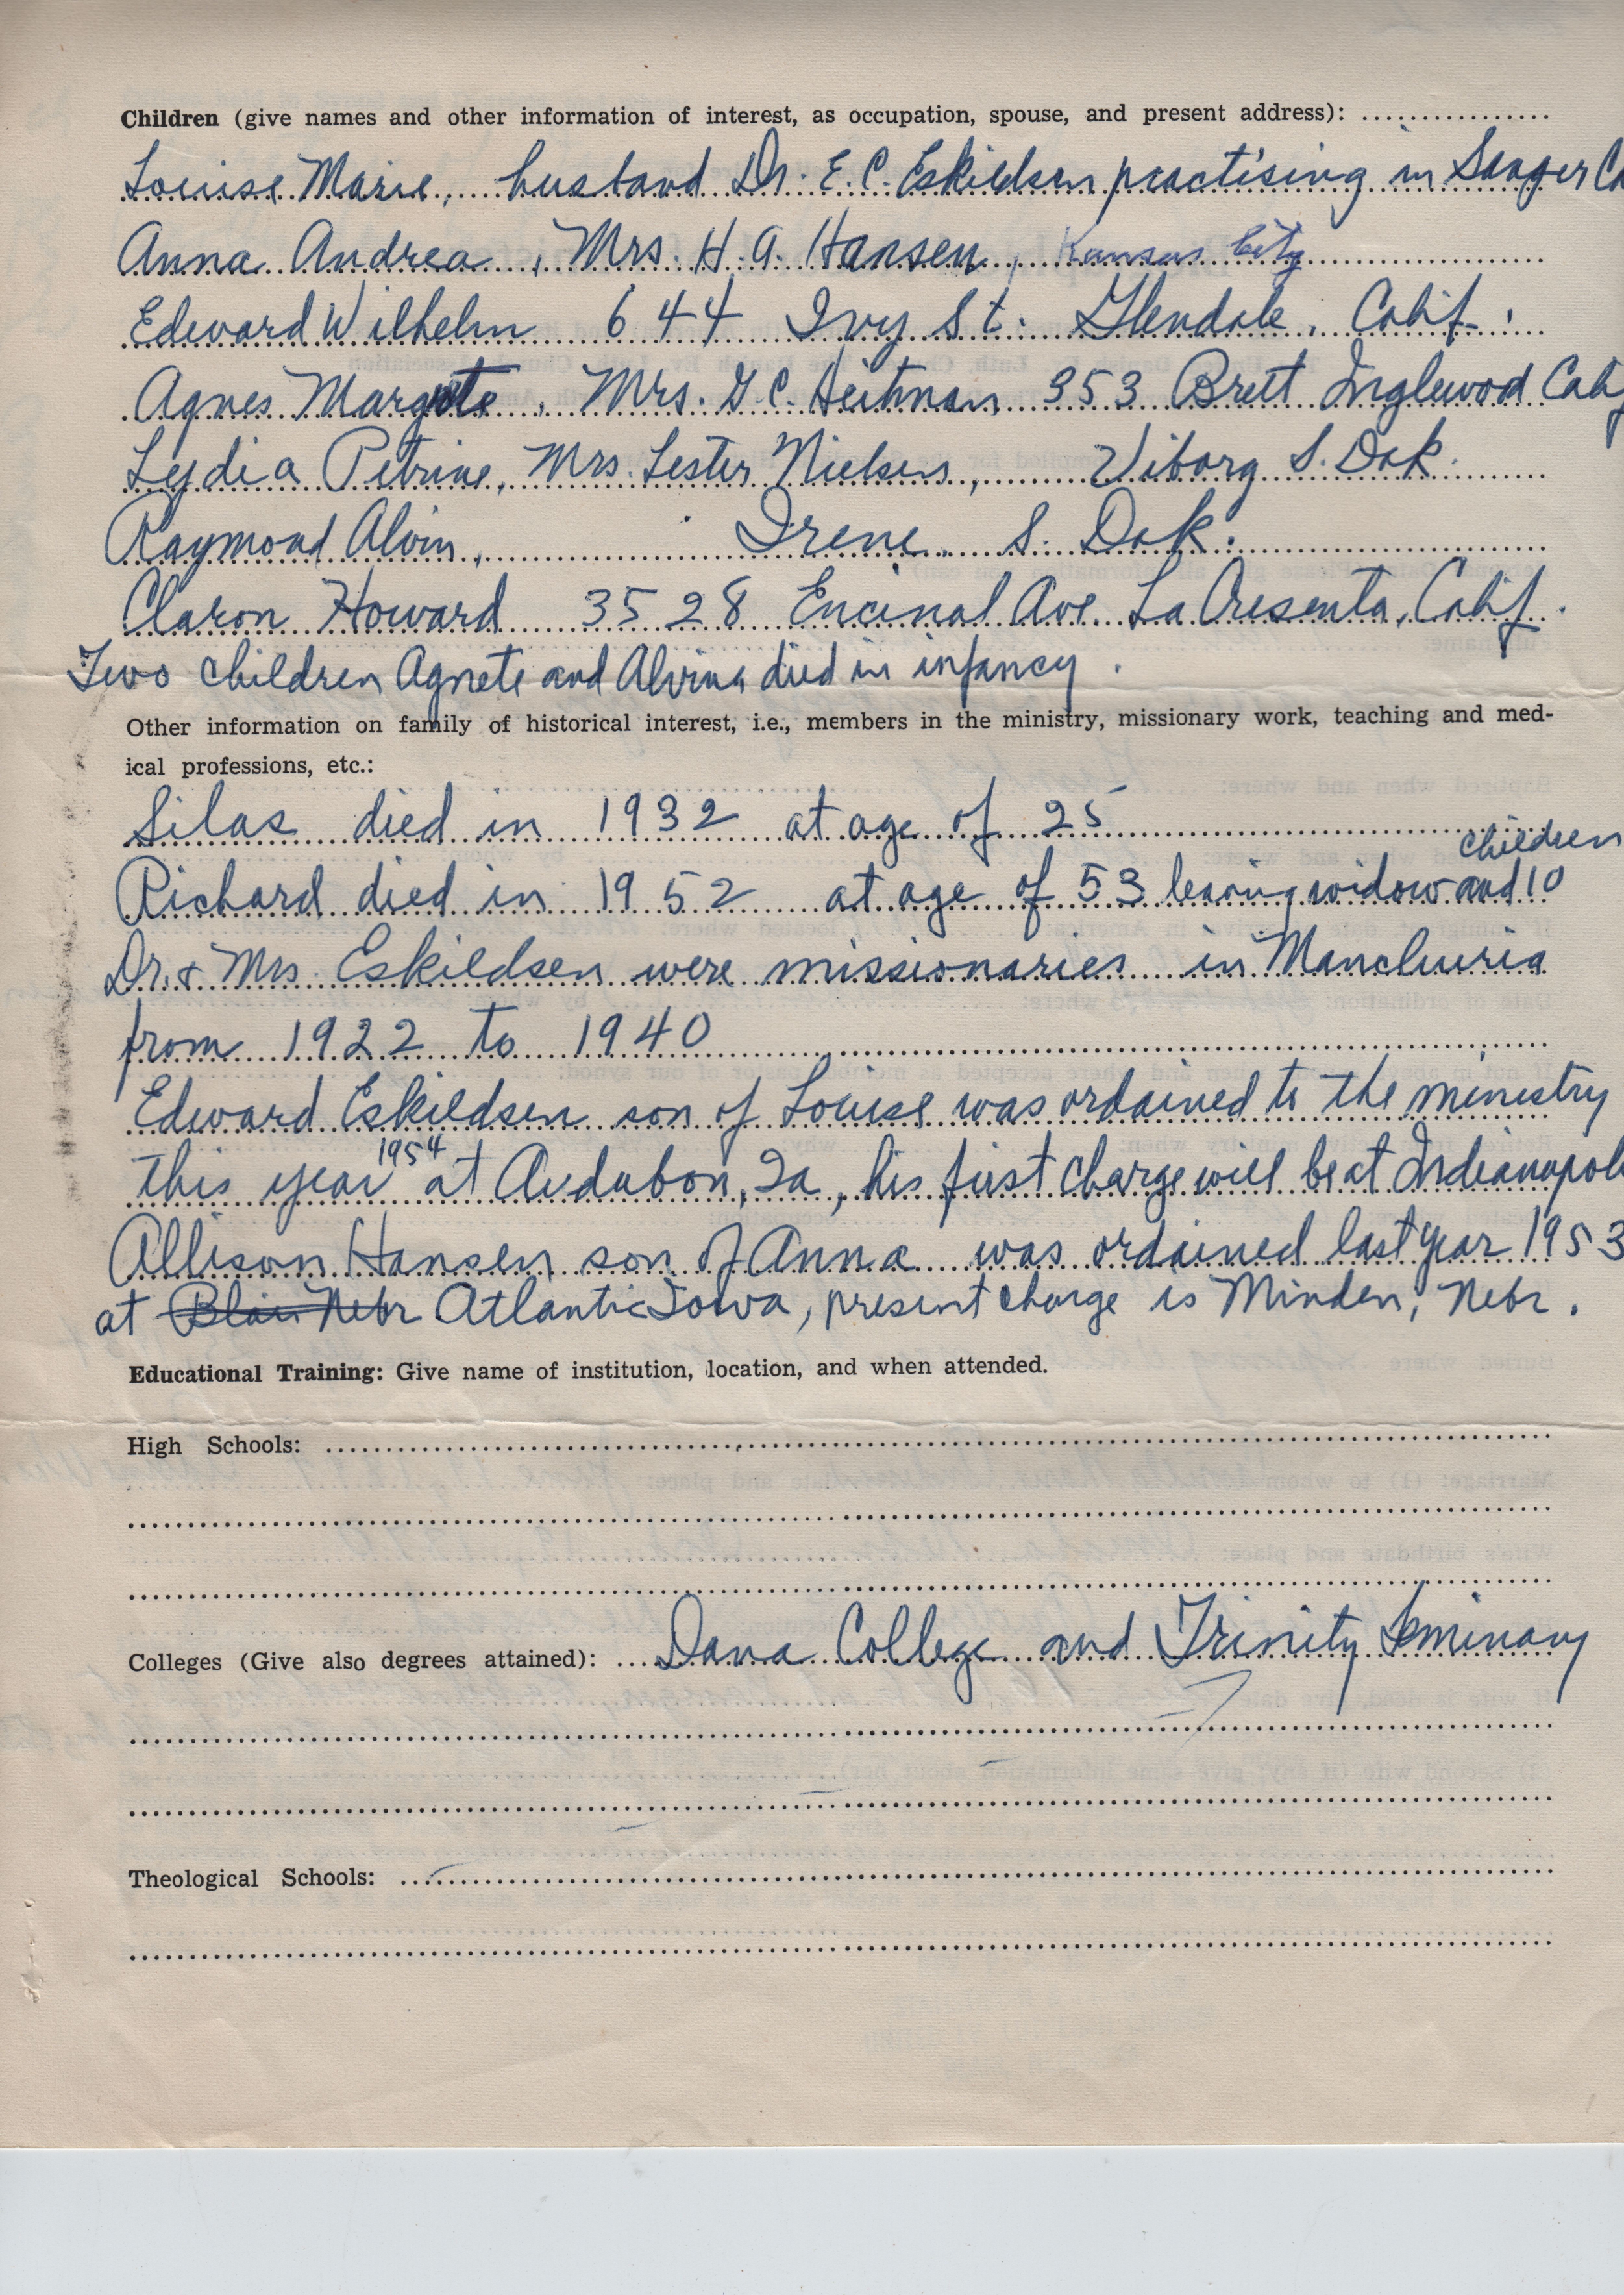 Children (give names and other information of interest, as occupation, spouse, and present address):
Louise Marie, husband Dr. E. C. Eskildsen practising in Sanger Ca
Anna Andrea, Mrs. H. A. Hansen, Kansas City
Edward Wilhelm 644 Ivy St. Glendale, Calif.
Agnes Margrete, Mrs. G. C. Heitman 353 Brett Inglewood Calif
Lydia Petrine, Mrs. Lester Nielsen, Viborg S. Dak.
Raymond Alvin, Irene S. Dak.
Claron Howard 3528 Encinal Ave. La Cresenta, Calif.
Two children Agnete and Alvina died in infancy.
Other information on family of historical interest, i.e., members in the ministry, missionary work, teaching and med-
ical professions, etc.:
Silas died in 1932 at age of 25
children
Richard died in 1952 at age of 53 leaving widow and 10
Dr. & Mrs. Eskildsen were missionaries in Manchuria
from 1922 to 1940
Edward Eskildsen son of Louise was ordained to the ministry
this year 1954 at Audubon, Ia, his first charge will be at Indianapol
Allison Hansen son of Anna was ordained last year 1953
at Blair Nebr Atlantic Iowa, present charge is Minden, Nebr.
Educational Training: Give name of institution, location, and when attended.
High Schools:
Colleges (Give also degrees attained): Dana College and Trinity Seminary
Theological Schools: